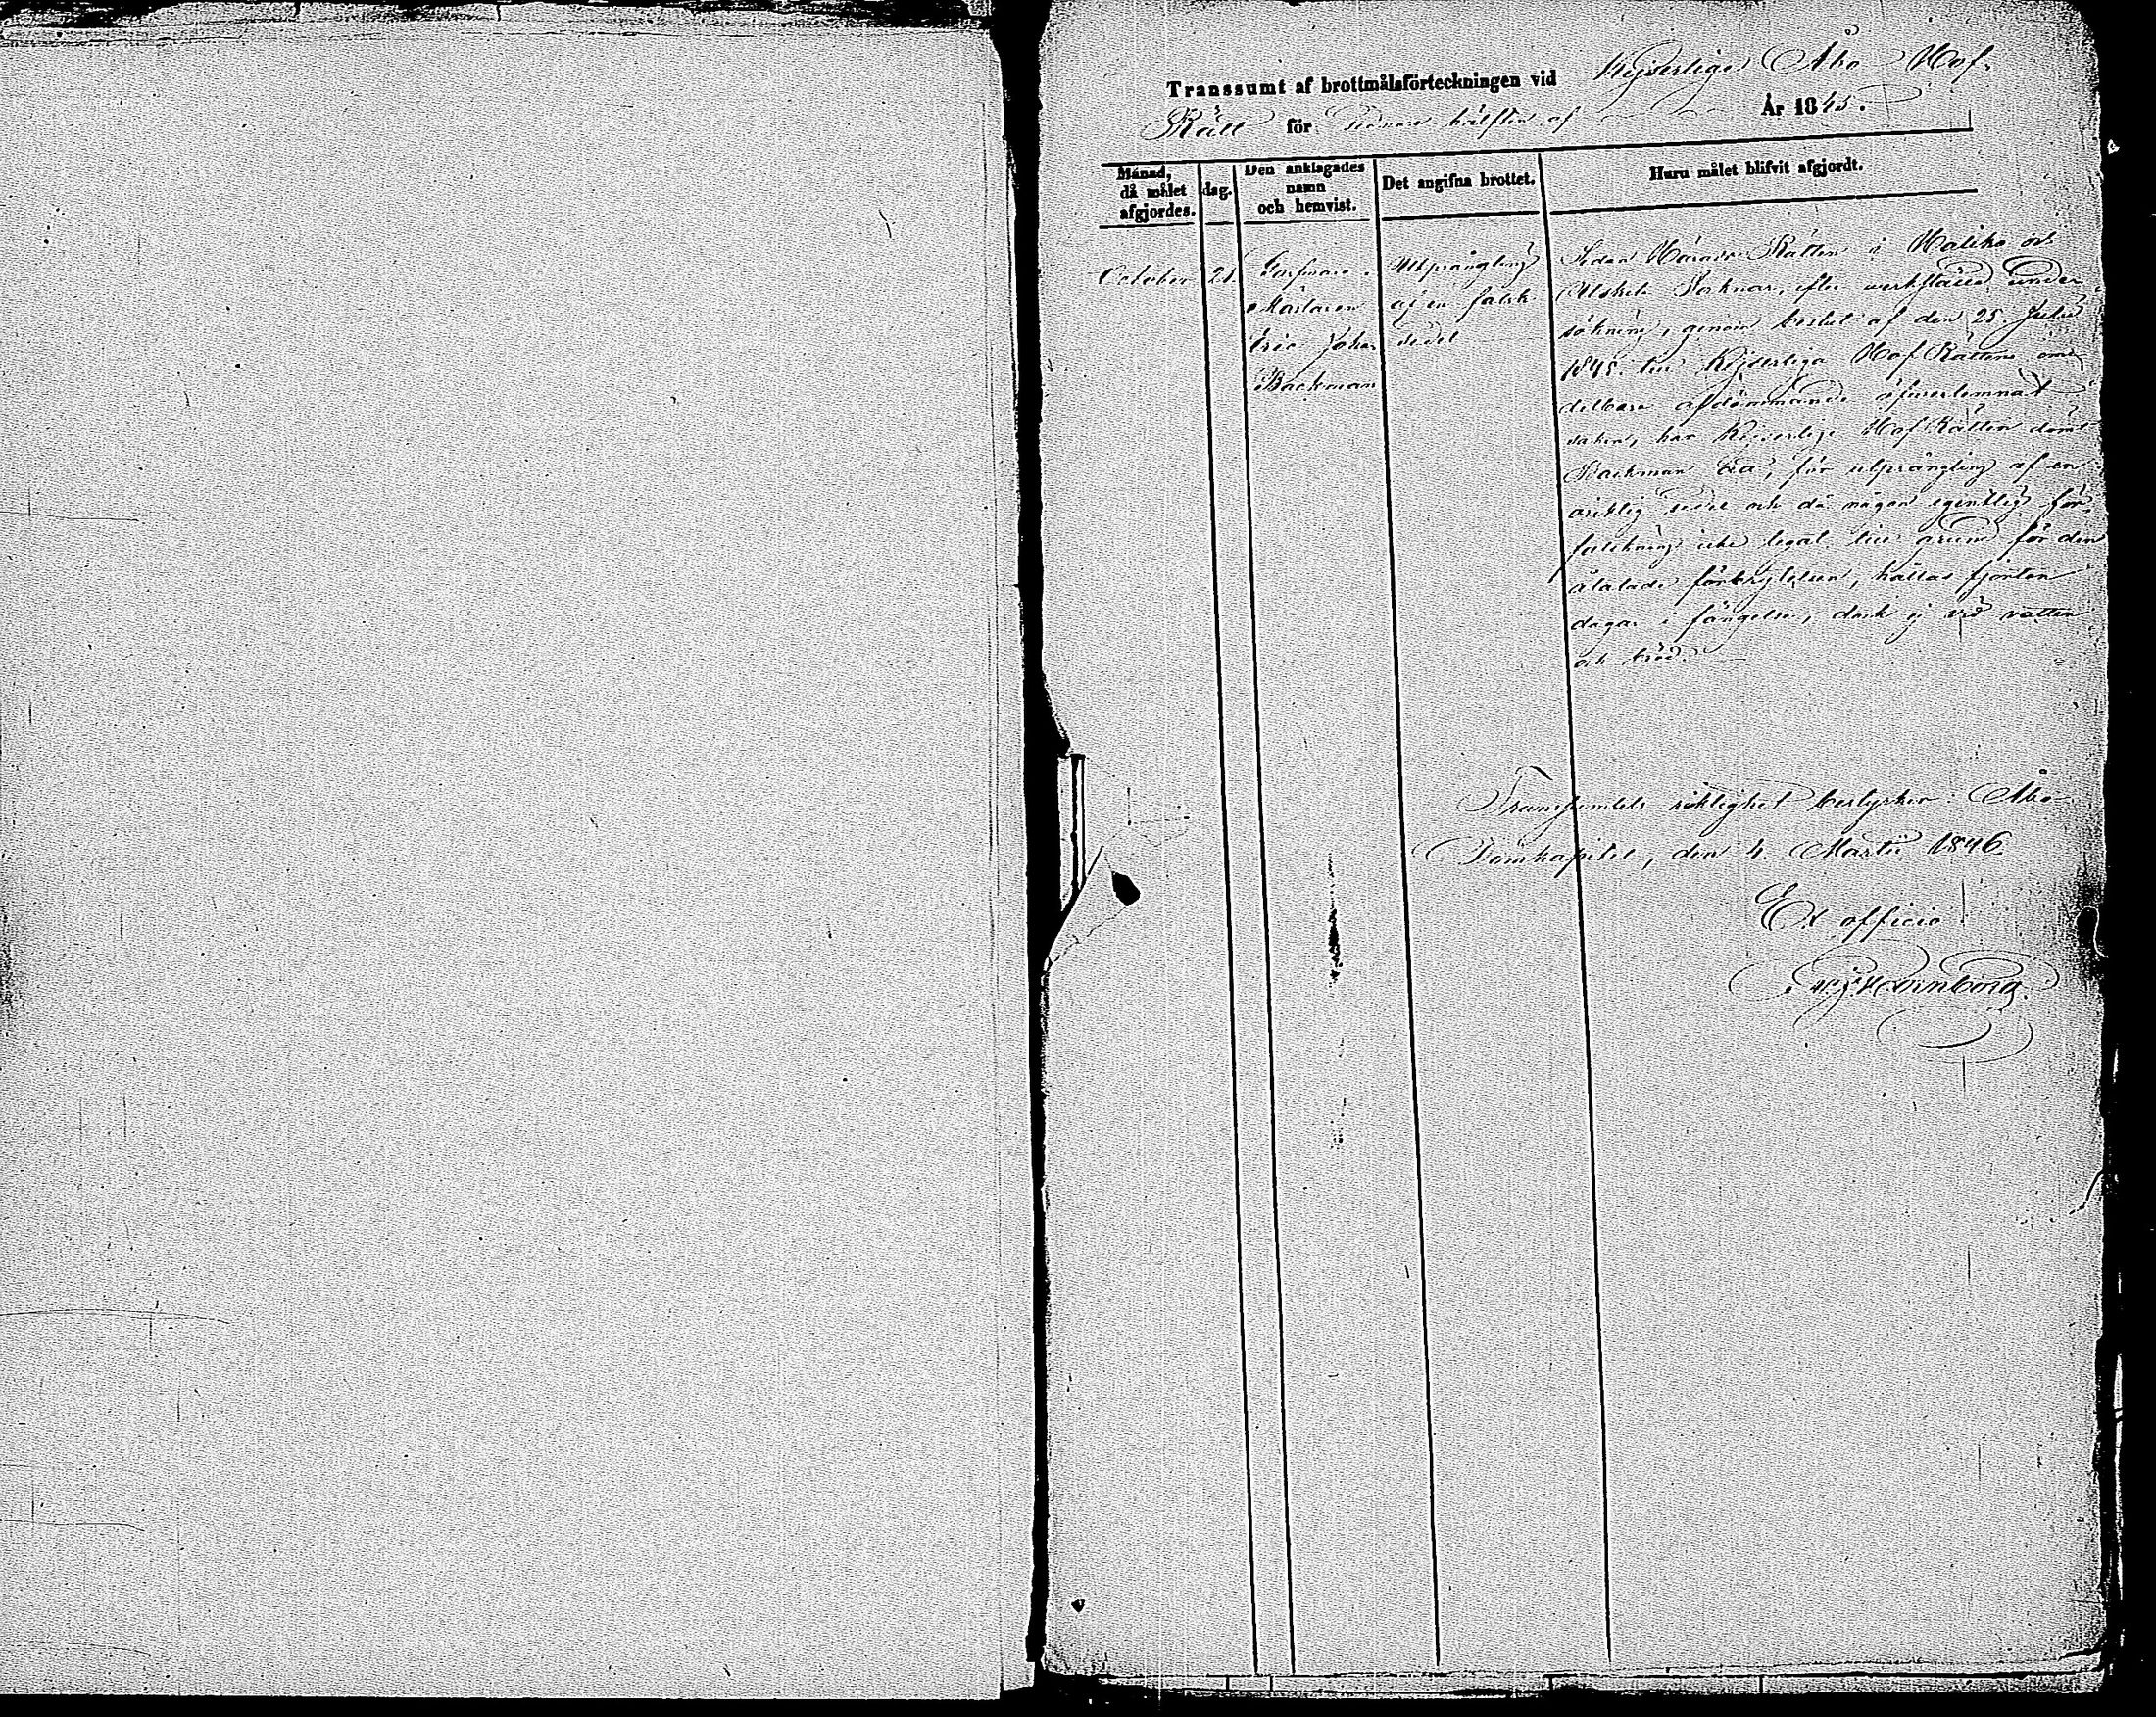 Transsumt af brottmålsförteckningen vid Kejserliga Åbo Hof-
Rätt för Sednare hälften af År 1845.
Månad, då målet afgjordes.
dag.
Den anklagades namn och hemvist.
Det angifna brottet.
Huru målet blifvit afgjordt.
October
21.
Garfvare-
Mästaren
Eric Johan
Backman
Utprångling
af en falsk
sedel
Sedan Härads Rätten i Haliko och
Uskela Soknar, efter werkställd under-
sökning, genom beslut af den 25 Julii
1845. till Kejserliga Hof Rättens ome-
delbara afdömmande öfverlemnat
saken, har Kejserliga Hof Rätten dömt
Backman att, för utprångling af en
oriktig sedel och då någon egentlig för-
falskning icke legat till grund för den
åtalade förbrytelsen, hållas fjorton
dagar i fängelse, dock ej vid vatten
och bröd.
Transsumtets riktighet bestyrker. Åbo
Domkapitel, den 4. Martii 1846.
Ex officio